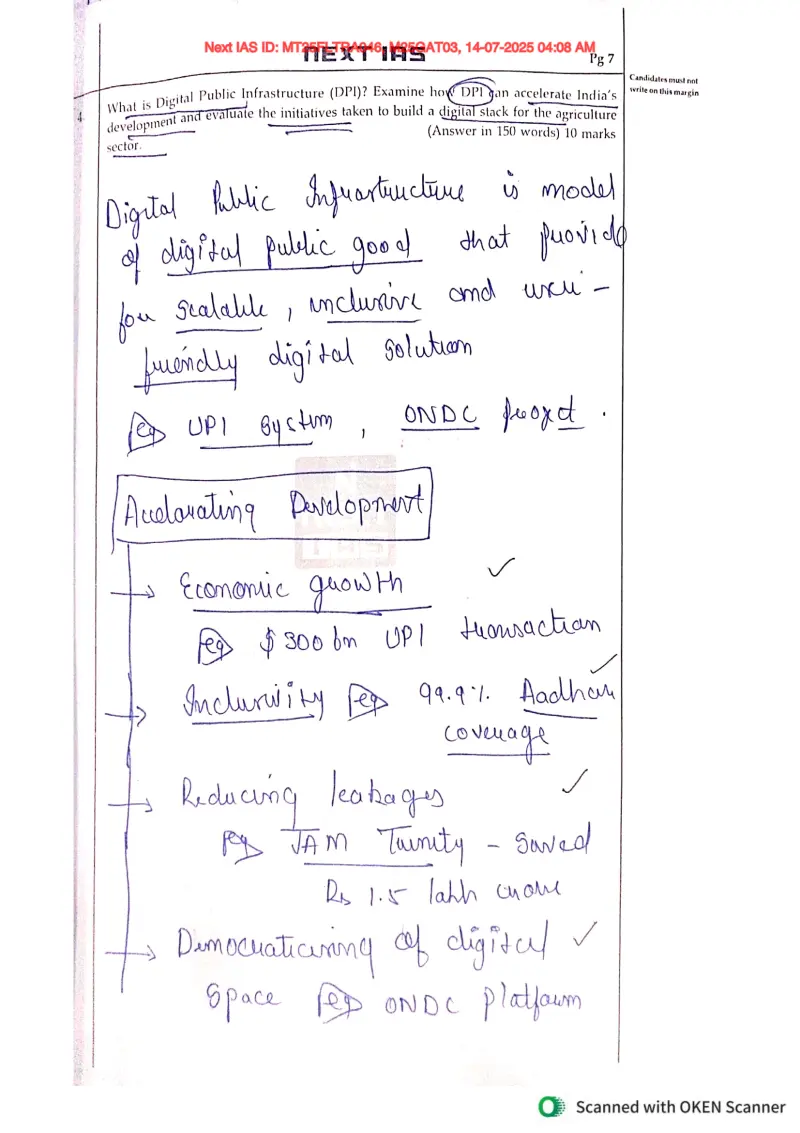 Next IAS ID: MT25FLTBA046, M25GAT03, 14-07-2025 04:08 AM
NEXT IAS
Pg 7
Candidates must not
write on this margin
4.
What is Digital Public Infrastructure (DPI)? Examine how DPI can accelerate India's
development and evaluate the initiatives taken to build a digital stack for the agriculture
sector.
(Answer in 150 words) 10 marks
Digital Public Infrastructure is model
of digital public good that provide
for scalable, inclusive and user-
friendly digital solution
eg UPI system, ONDC
Accelerating Development
Economic growth
eg $300 bn UPI transaction
Inclusivity eg 99.9% Aadhar
coverage
Reducing leakages
eg JAM Trinity - Saved
Rs 1.5 lakh crore
Democraticising of digital
Space eg ONDC platform
Scanned with OKEN Scanner